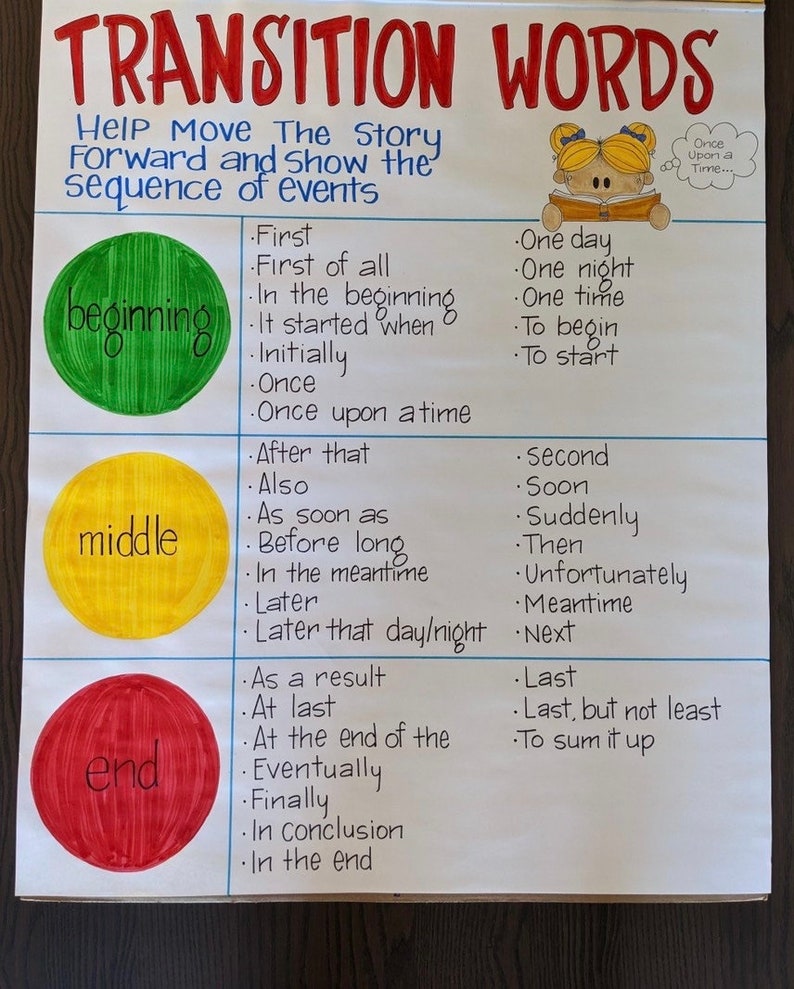 TRANSITION WORDS
Help Move The Story
Forward and Show the
sequence of events
Once
Upon a
Time...
beginning
·First
·First of all
·In the beginning
·It started when
·Initially
·Once
·Once upon a time
·One day
·One night
·One time
·To begin
·To start
middle
·After that
·Also
·As soon as
·Before long
·In the meantime
·Later
·Later that day/night
·Second
·Soon
·Suddenly
·Then
·Unfortunately
·Meantime
·Next
end
·As a result
·At last
·At the end of the
·Eventually
·Finally
·In conclusion
·In the end
·Last
·Last, but not least
·To sum it up